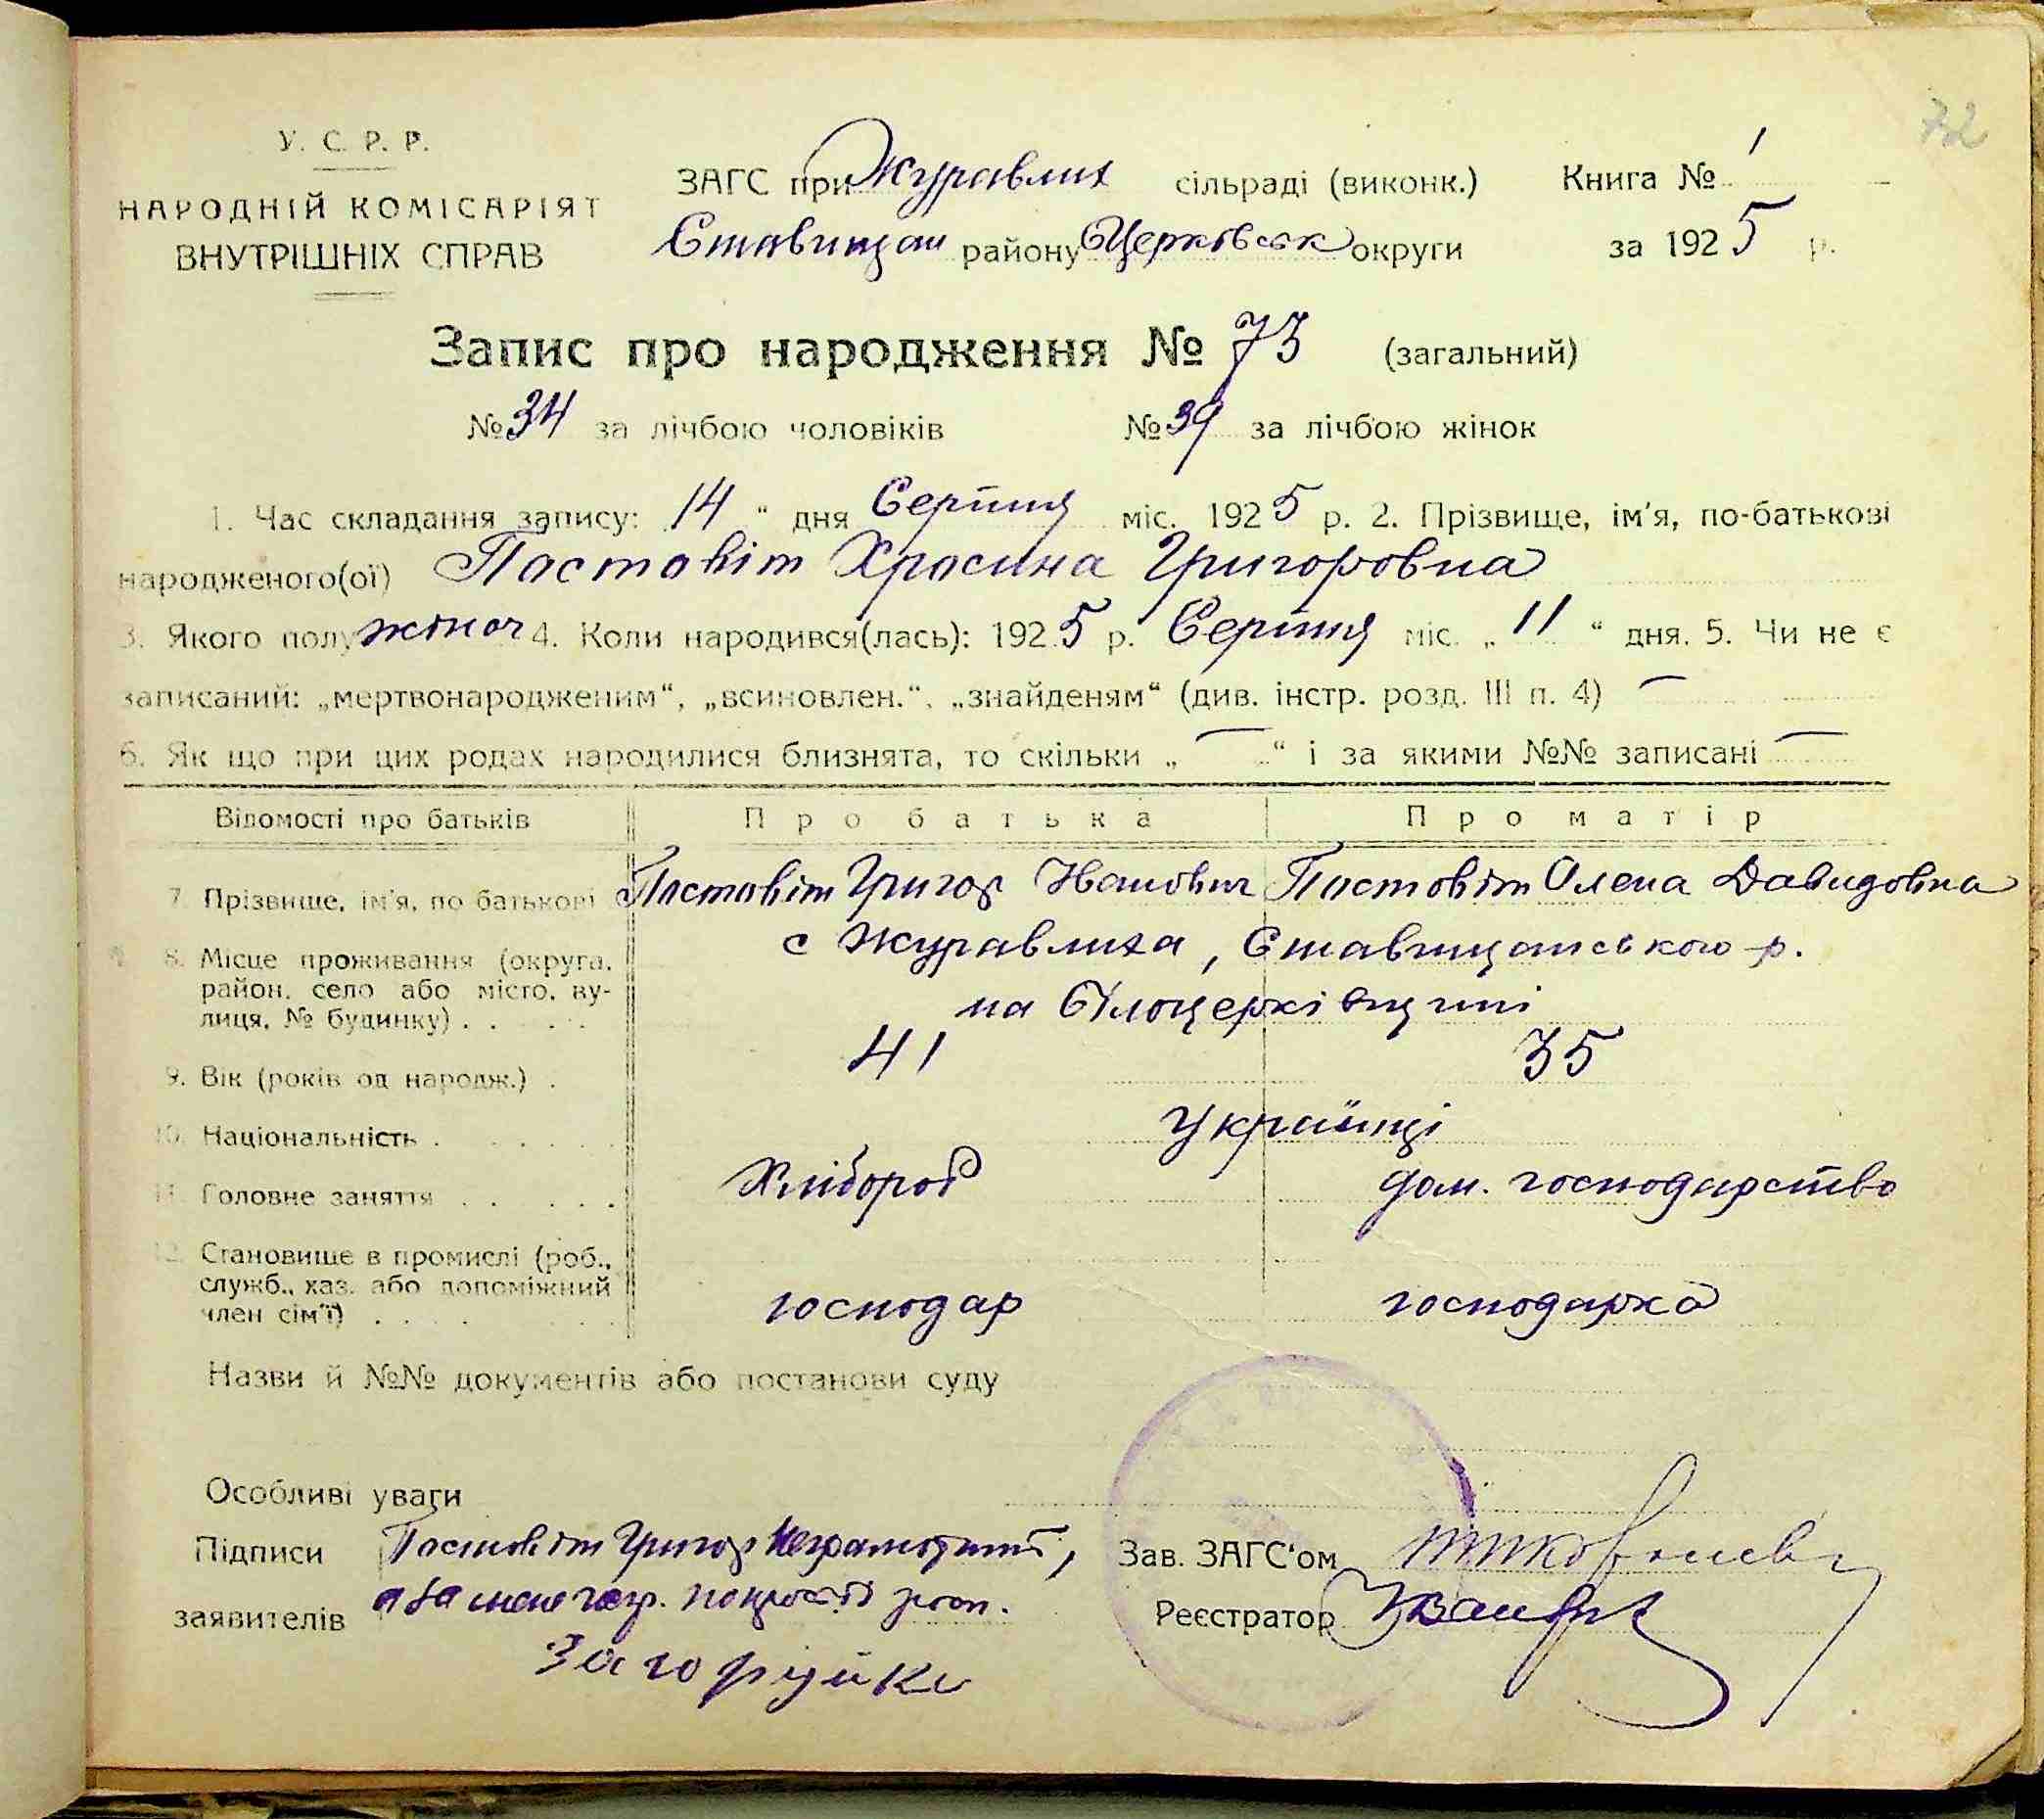 72
У. С. Р. Р.
НАРОДНІЙ КОМІСАРІЯТ
ВНУТРІШНІХ СПРАВ
ЗАГС при Журавлих сільраді (виконк.) Книга № 1
Ставищан району БЦерковськ округи за 1925 р.
Запис про народження № 73 (загальний)
№ 34 за лічбою чоловіків № 39 за лічбою жінок
1. Час складання запису: 14 " дня Серпня міс. 1925 р. 2. Прізвище, ім'я, по-батькові
народженого(ої) Постовіт Хросина Григоровна
3. Якого полу жіноч 4. Коли народився(лась): 1925 р. Серпня міс. „ 11 " дня. 5. Чи не є
записаний: „мертвонародженим", „всиновлен.", „знайденям" (див. інстр. розд. III п. 4) —
6. Як що при цих родах народилися близнята, то скільки „ — " і за якими №№ записані —
Відомості про батьків Про батька Про матір
7. Прізвище, ім'я, по батькові Постовіт Григор Іванович Постовіт Олена Давидовна
8. Місце проживання (округа, с Журавлиха, Ставищанського р.
район, село або місто, ву-
лиця, № будинку) . . на Білоцерківщині
9. Вік (років од народж.) . 41 35
10. Національність . Українці
11. Головне заняття . Хлібороб дом. господарство
12. Становище в промислі (роб.,
служб., хаз. або допоміжний
член сім'ї) . господар господарка
Назви й №№ документів або постанови суду
Особливі уваги
Підписи Постовіт Григор Неграмотний,
Зав. ЗАГС'ом
заявителів а за
Реєстратор
Загоруйко